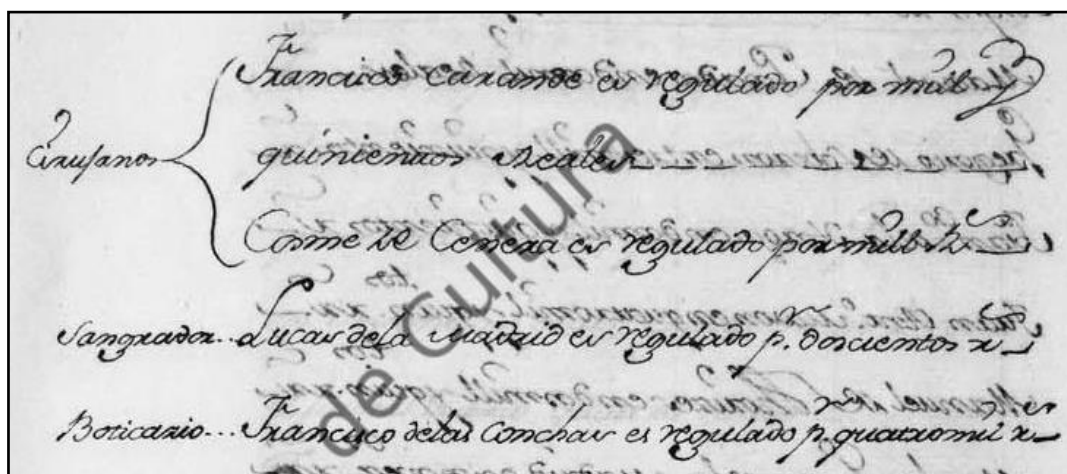 Francisco Carande es regulado por mill y
Cirujanos
quinientos Reales
Cosme de Cenera es regulado por mill R.s
Sangrador... Lucas dela Madrid es regulado p.r doscientos r.s
Boticario... Francisco delas Conchas es regulado p.r quatromil r.s
de Cultura